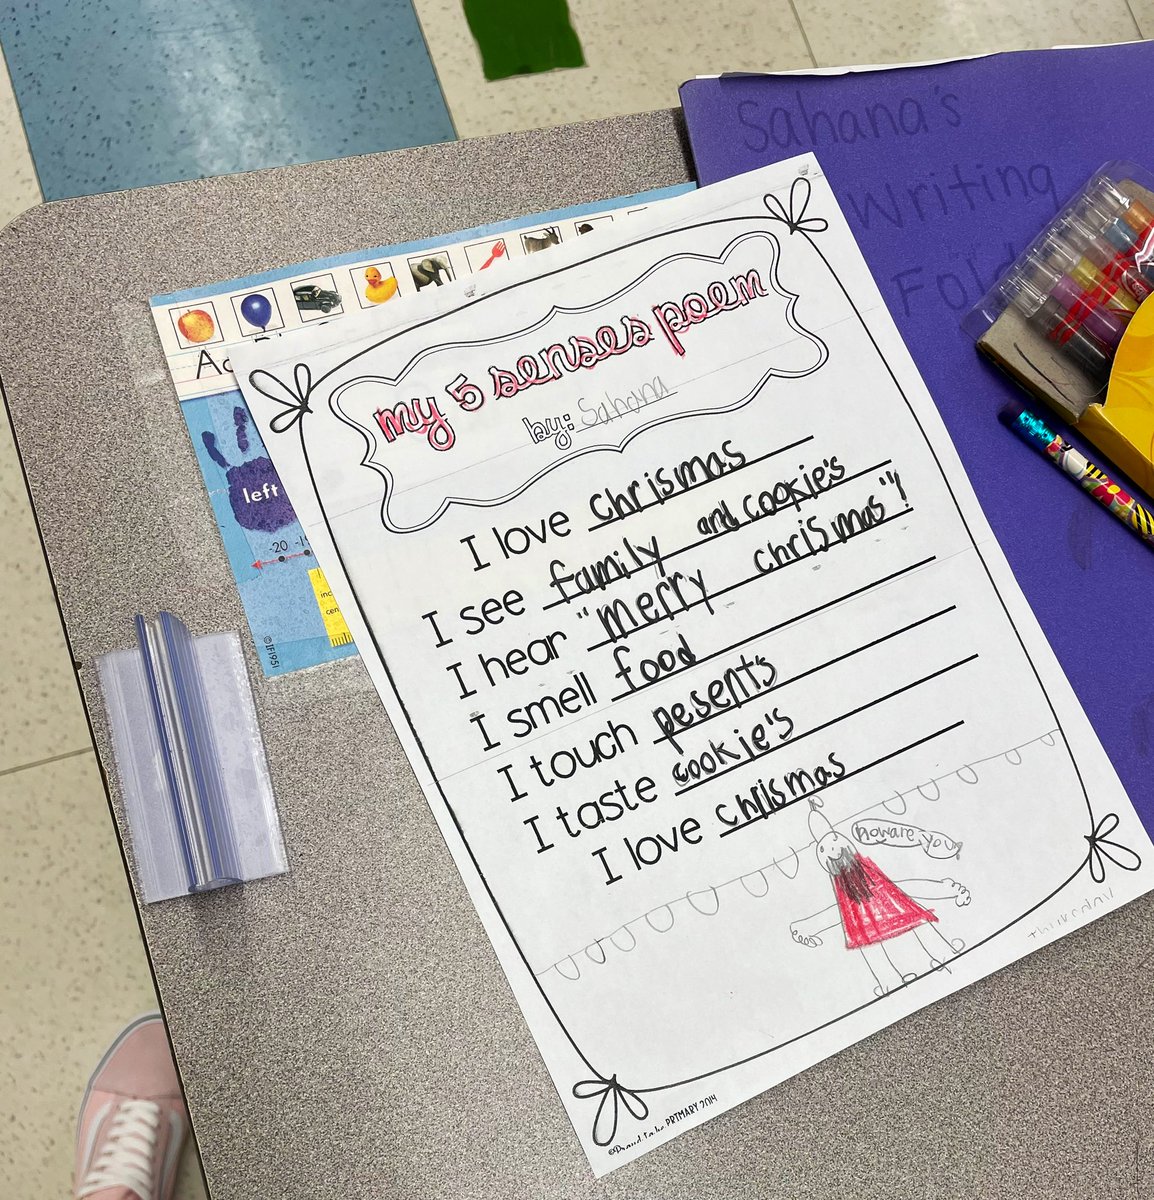 Sahana's
Writing
Fold
my 5 senses poem
by: Sahana
I love chrismas
I see family and cookie's
I hear "merry chrismas"!
I smell food
I touch pesents
I taste cookie's
I love chrismas
howare you
left
-20
©IF1951
©Proud to be PRIMARY 2014